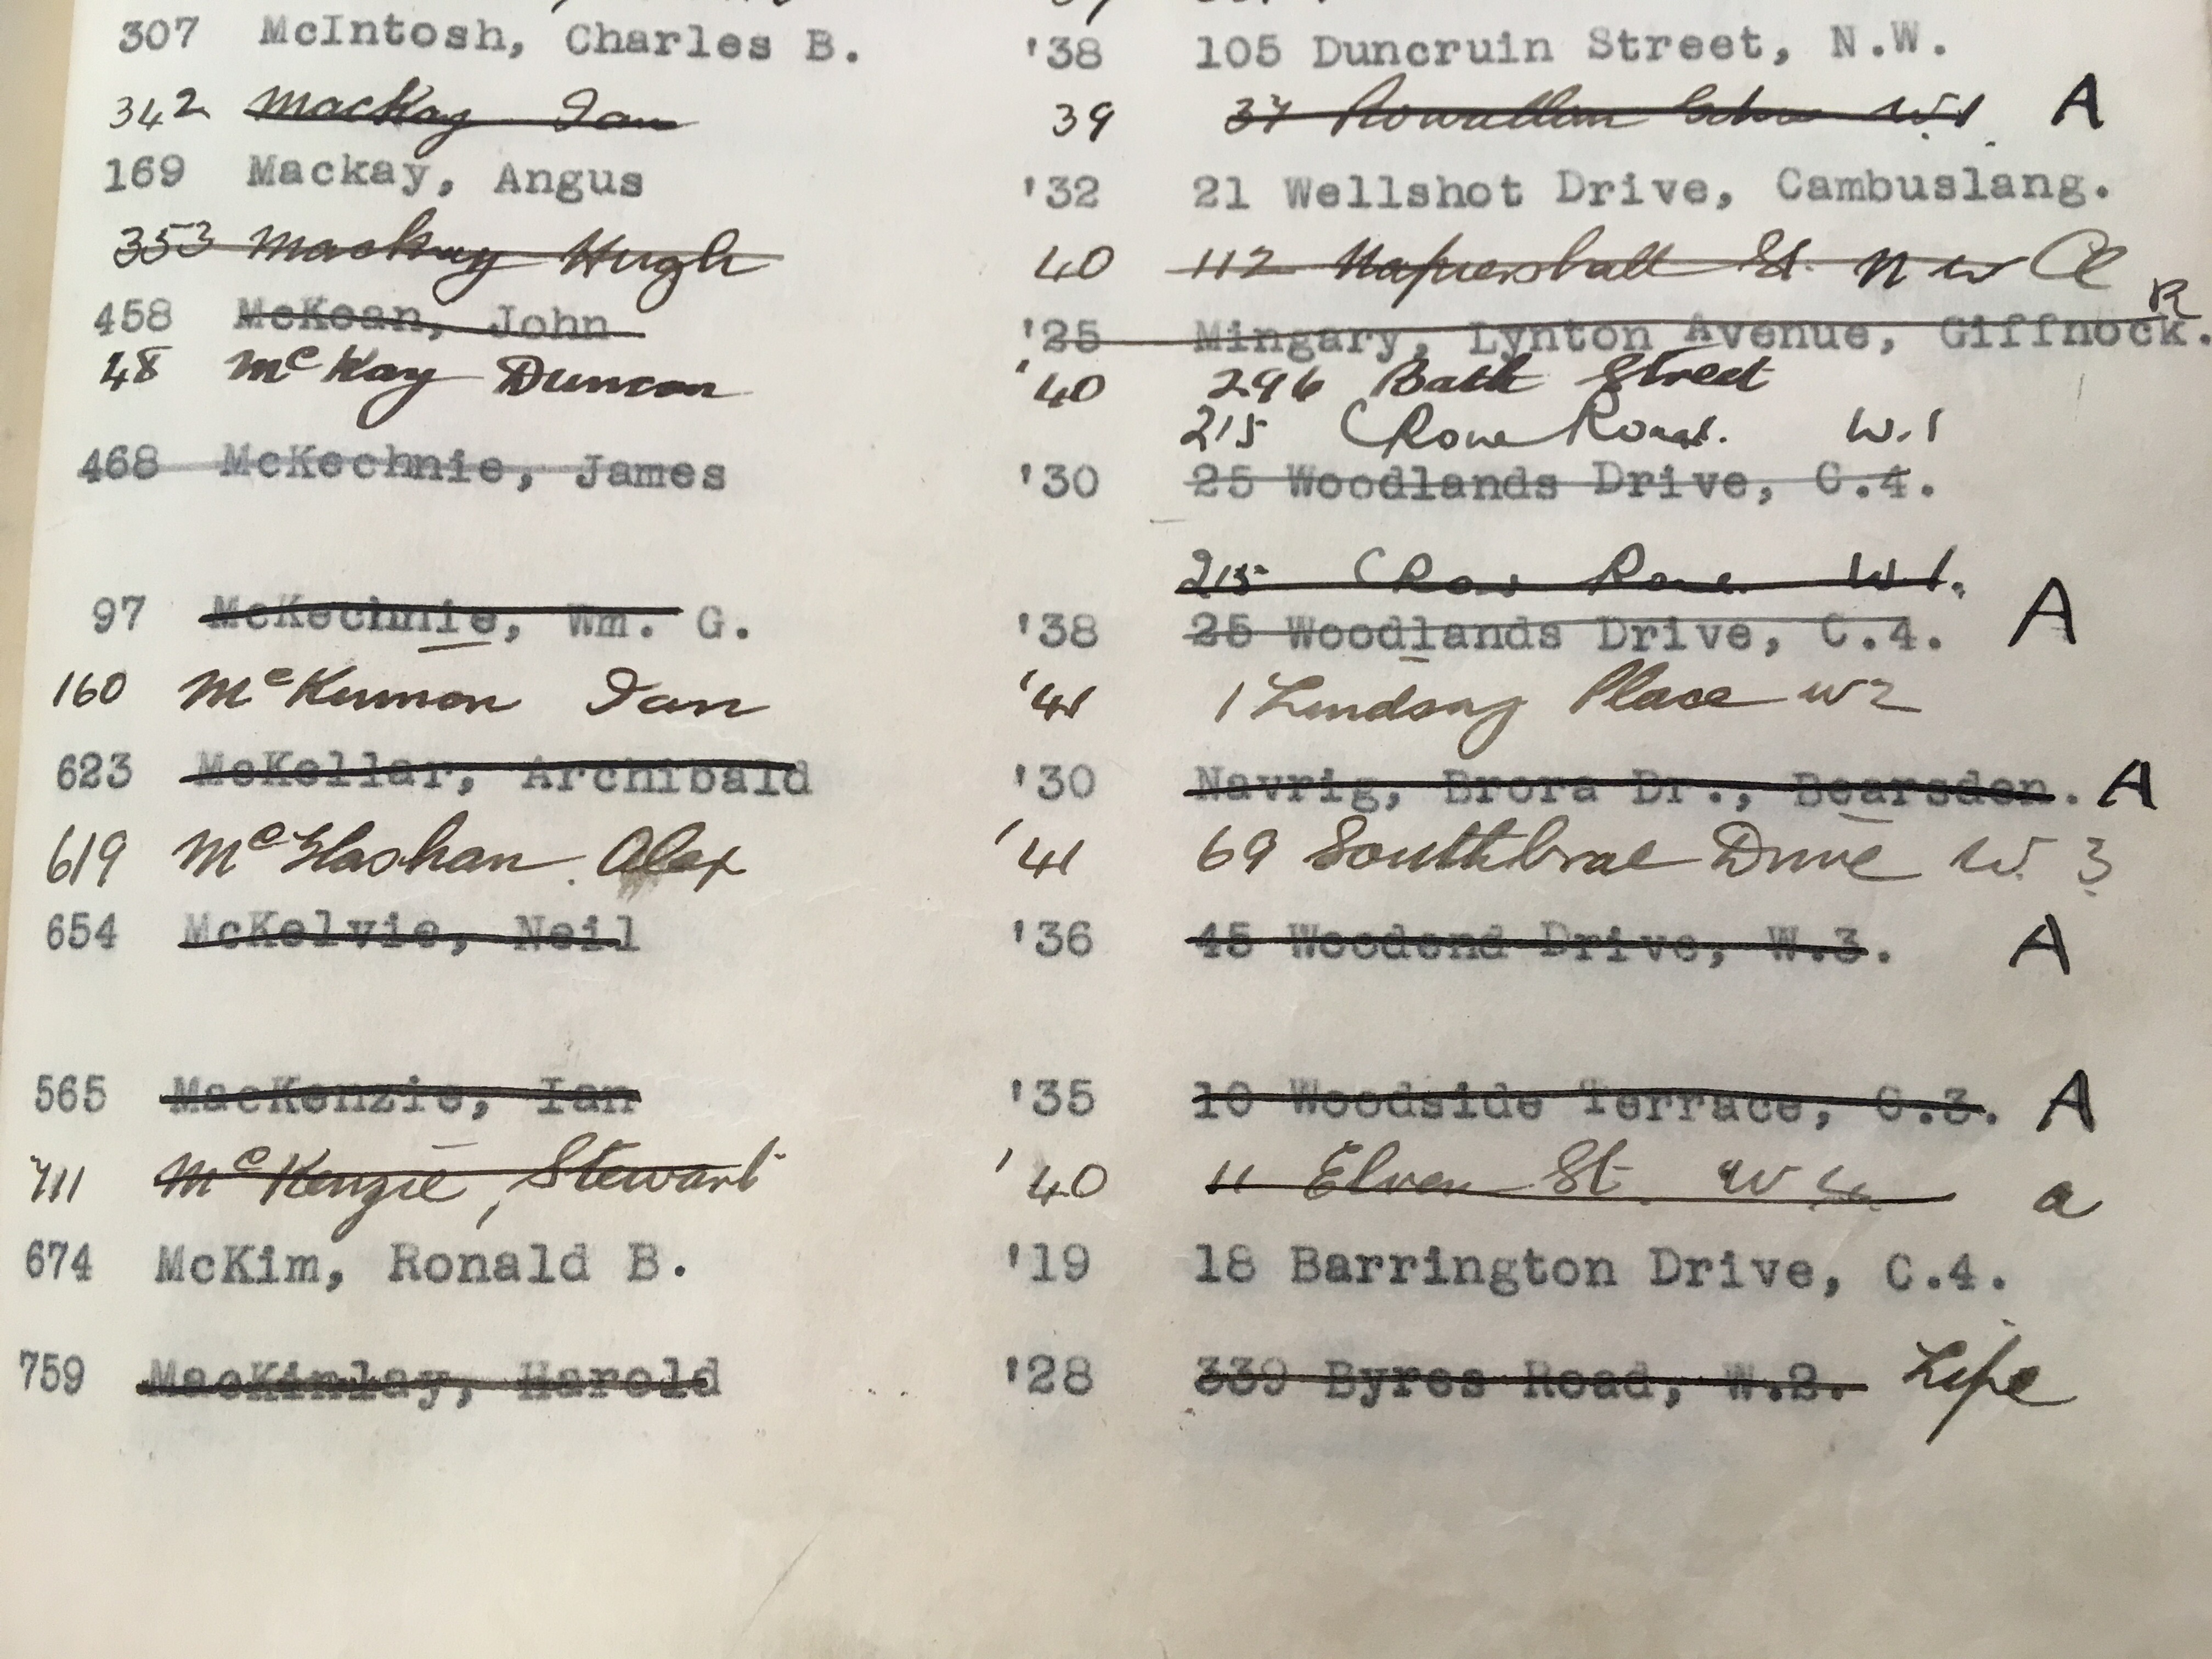 307 McIntosh, Charles B. '38 105 Duncruin Street, N.W.
342 MacKay Ian 39 37 Rowallan W.1 A
169 Mackay, Angus '32 21 Wellshot Drive, Cambuslang.
353 Mackay Hugh 40 112 Napiershall St. N W
R
458 McKean, John '25 Mingary, Lynton Avenue, Giffnock.
48 McKay Duncan '40 296 Bath Street
215 Crow Road. W.1
468 McKechnie, James '30 25 Woodlands Drive, C.4.
215 Crow Road W1.
97 McKechnie, Wm. G. '38 25 Woodlands Drive, C.4. A
160 McKinnon Ian '41 1 Lindsay Place W2
623 McKellar, Archibald '30 Navrig, Brora Dr., Bearsden. A
619 McGlashan. Alex '41 69 Southbrae Drive W. 3
654 McKelvie, Neil '36 45 Woodend Drive, W.3. A
565 MacKenzie, Ian '35 10 Woodside Terrace, C.3. A
711 McKenzie, Stewart '40 11 St. W a
674 McKim, Ronald B. '19 18 Barrington Drive, C.4.
759 MacKinlay, Harold '28 339 Byres Road, W.2. Life